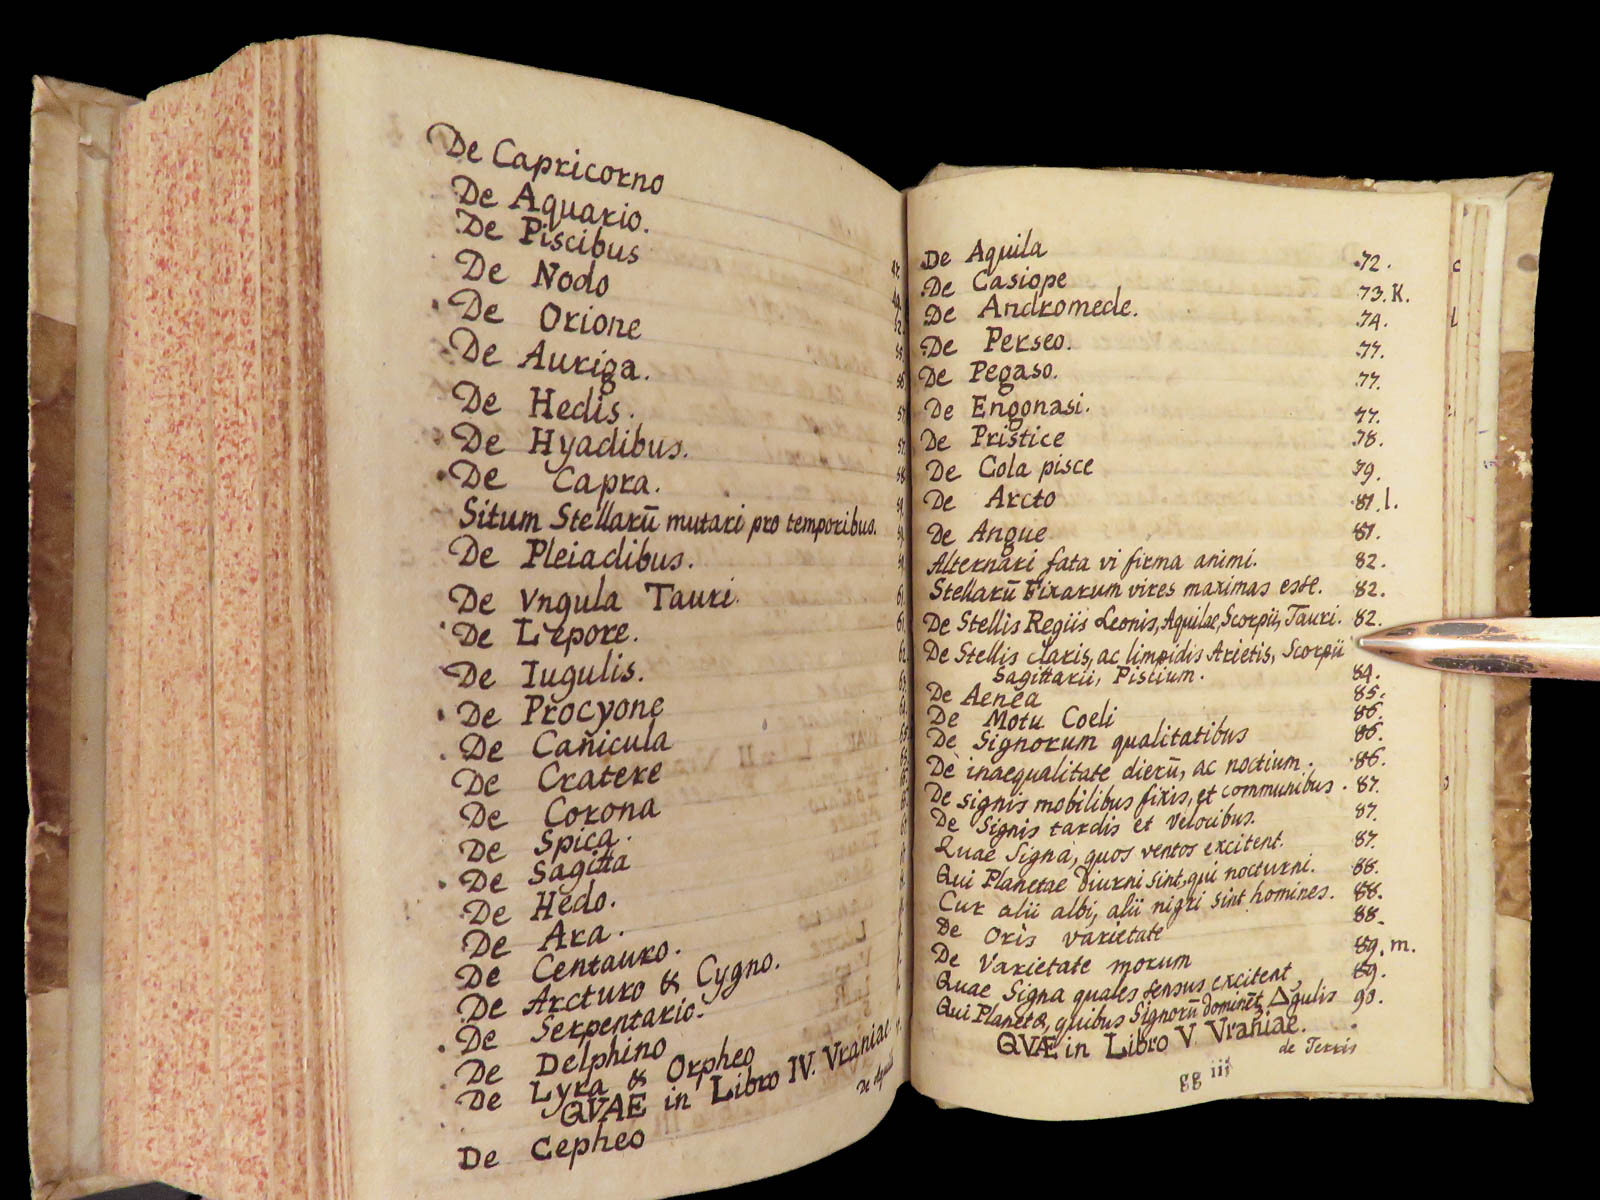 De Capricorno
De Aquario.
De Piscibus
De Nodo
De Orione
De Auriga.
De Hedis.
De Hyadibus.
De Capra.
Situm Stellarū mutari pro temporibus.
De Pleiadibus.
De Vngula Tauri.
De Lepore.
De Iugulis.
De Procyone
De Canicula
De Cratere
De Corona
De Spica.
De Sagitta
De Hedo.
De Ara.
De Centauro.
De Arcturo & Cygno.
De Serpentario.
De Delphino
De Lyra & Orpheo
QVAE in Libro IV. Vraniae
De Cepheo
De Aquila 72.
De Casiope 73. K.
De Andromede. 74.
De Perseo. 77.
De Pegaso. 77.
De Engonasi. 77.
De Pristice 78.
De Cola pisce 79.
De Arcto 81. l.
De Angue 81.
Alternari fata vi firma animi. 82.
Stellarū Fixarum vires maximas esse. 82.
De Stellis Regiis Leonis, Aquilae, Scorpii, Tauri. 82.
De Stellis claris, ac limpidis Arietis, Scorpii
Sagittarii, Piscium. 84.
De Aenea 85.
De Motu Coeli 86.
De Signorum qualitatibus 86.
De inaequalitate dierū, ac noctium. 86.
De signis mobilibus fixis, et communibus. 87.
De Signis tardis et velocibus. 87.
Quae Signa, quos ventos excitent. 87.
Qui Planetae diurni sint, qui nocturni. 88.
Cur alii albi, alii nigri sint homines. 88.
De Oris varietate 88.
De Varietate morum 89. m.
Quae Signa quales sensus excitent 89.
Qui Planetæ, quibus Signorū dominēt Δgulis 90.
QVÆ in Libro V. Vraniae.
de Terris
gg iij